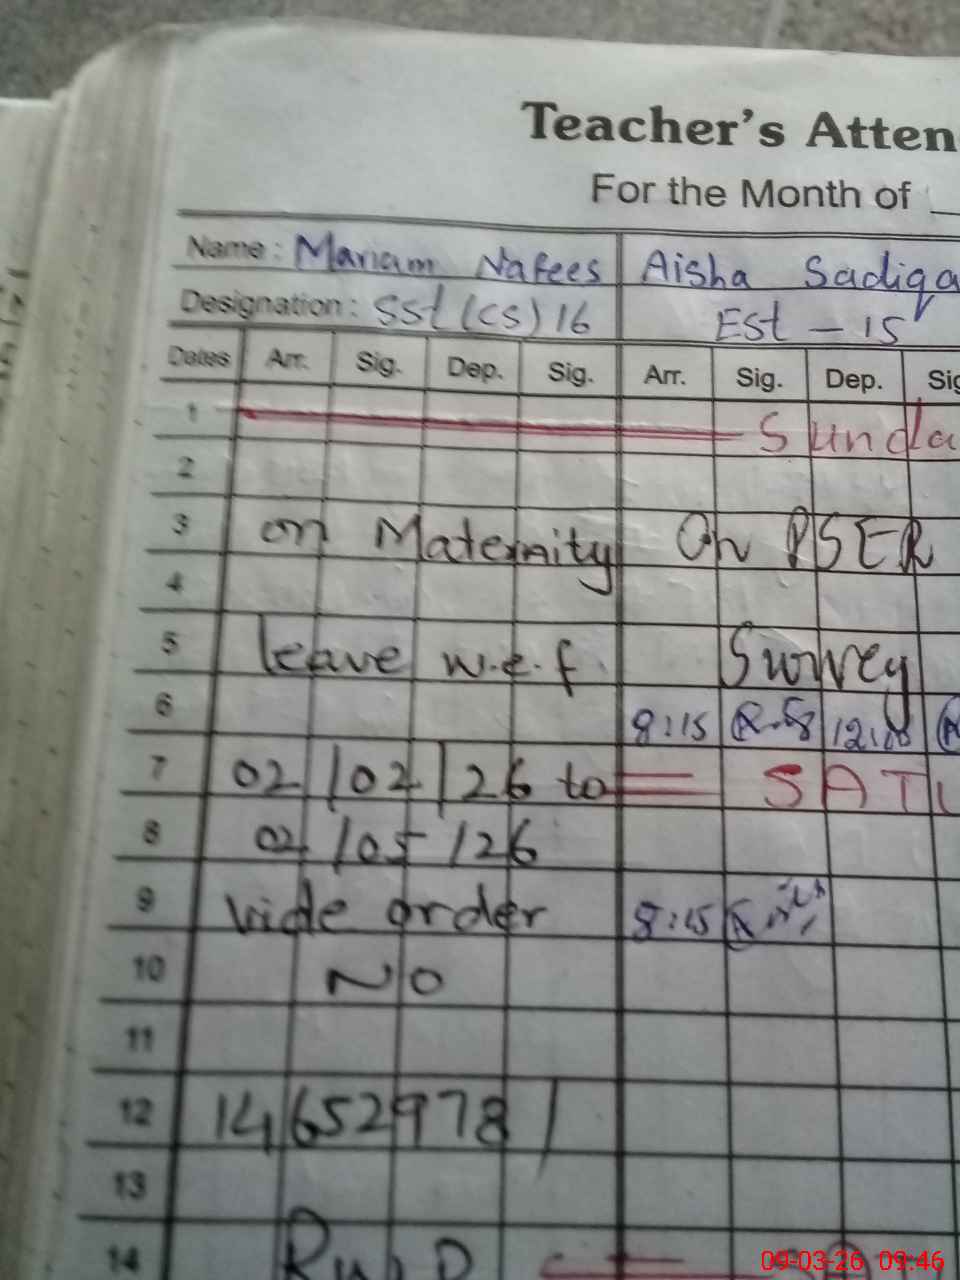 Teacher's Atten
For the Month of
Name : Mariam Nafees Aisha Sadiqa
Designation : SSt (CS) 16 Est - 15
Dates Arr. Sig. Dep. Sig. Arr. Sig. Dep. Sig
1 Sunda
2
3 on Maternity On PSER
4
5 leave w.e.f Survey
6 8:15 12:00
7 02/02/26 to SATU
8 02/05/26
9 vide order 8:15
10 NO
11
12 14652978/
13
14
09-03-26 09:46